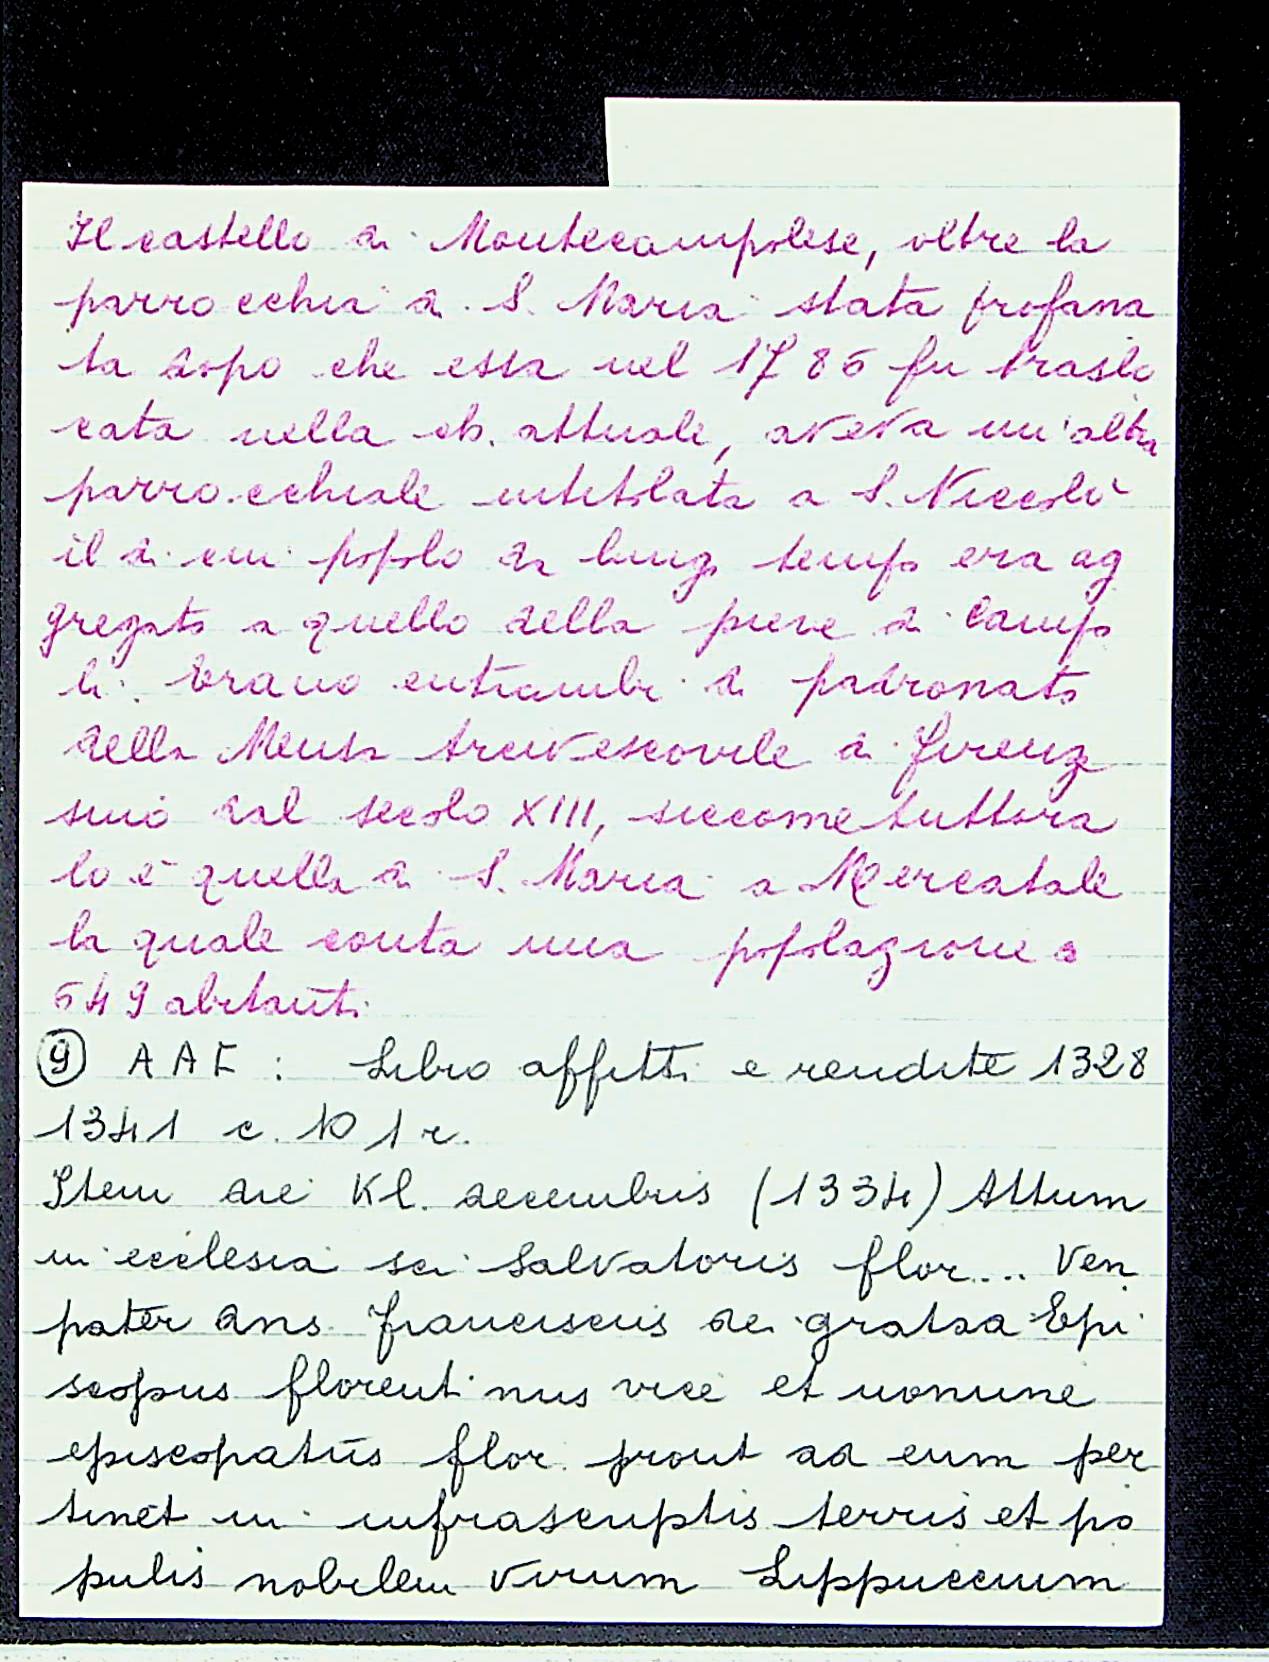 Il castello di Montecampolese, oltre la
parrocchia di S. Maria stata profana
ta dopo che essa nel 1786 fu traslo
cata nella ch. attuale, aveva un'altra
parrocchiale intitolata a S. Niccolò
il di cui popolo da lungo tempo era ag
gregato a quello della pieve di Campo
li. Erano entrambi di padronato
della Mensa Arcivescovile di Firenze
sino dal secolo XIII, siccome tuttora
lo è quella di S. Maria a Mercatale
la quale conta una popolazione
649 abitanti.
(9) AAF : Libro affitti e rendite 1328
1341 c. 101 r.
Item die Kl. decembris (1334) Attum
in ecclesia sci Salvatoris flor.... Ven
pater dns Franciscus dei gratia Epi
scopus florentinus vice et nomine
episcopatus flor. prout ad eum per
tinet in infrascriptis terris et po
pulis nobilem virum Lippuccium